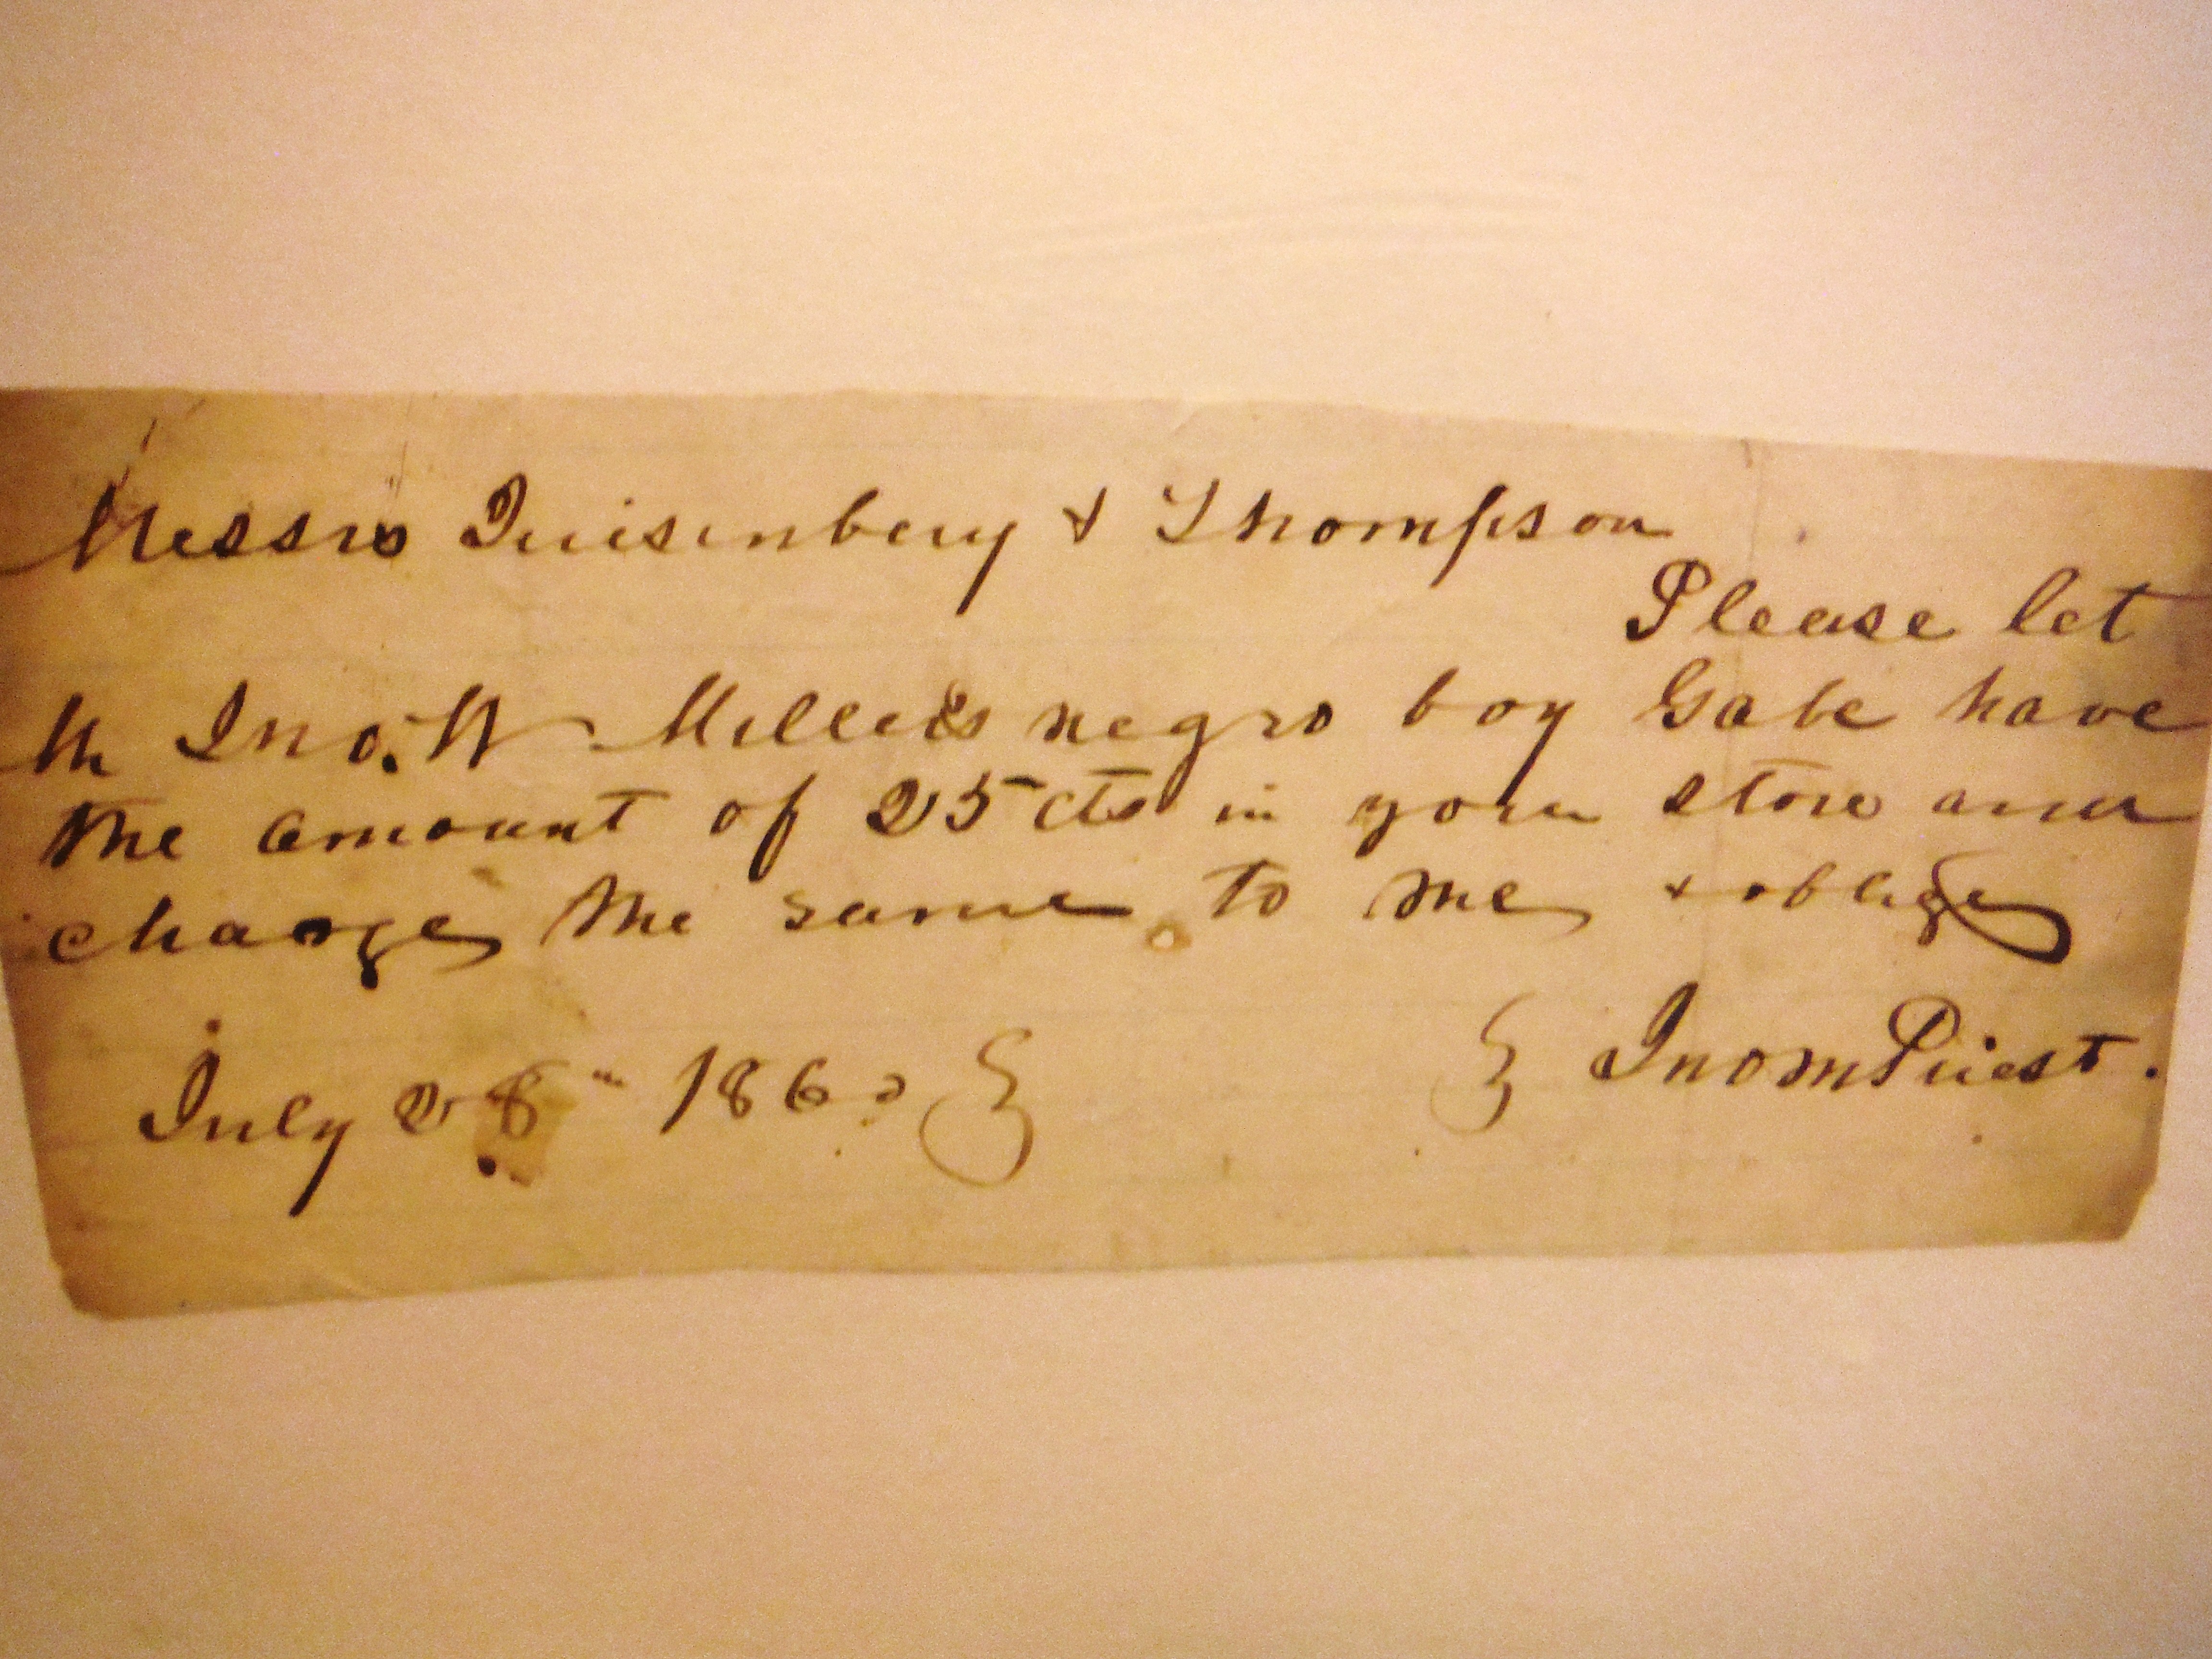 Messrs Quisenbery & Thompson
Please let
Mr Jno. W Millers negro boy Gabe have
the amount of 25 cts in your store and
charge the same to me & oblige
July 28 186 Jno M Priest.